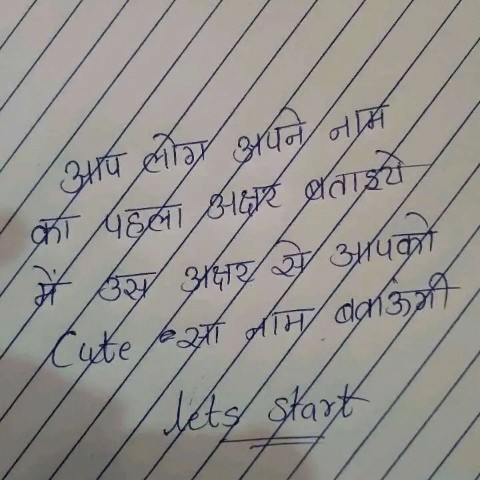 आप लोग अपने नाम
का पहला अक्षर बताइये
में उस अक्षर से आपको
Cute सा नाम बताऊंगी
lets start